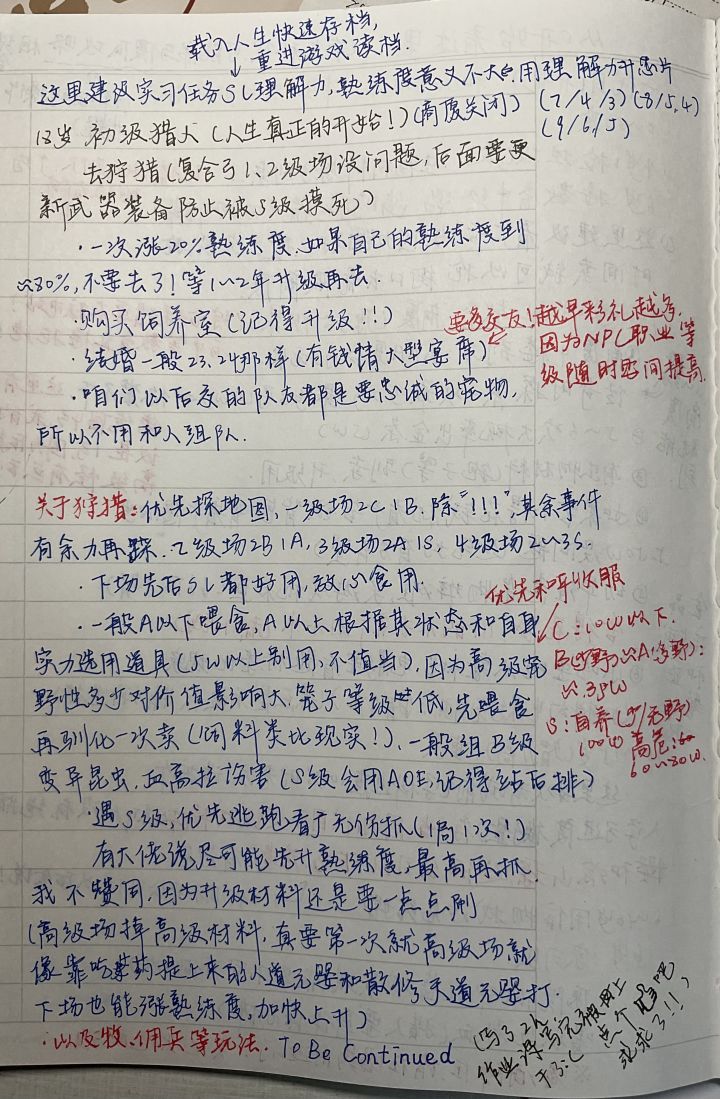 载入人生快速存档,
↓重进游戏读档.
这里建议实习任务SL理解力,熟练度意义不大,用理解力升芯片
(7/4/3)(8/5,4)
(9/6/5)
18岁 初级猎人(人生真正的开始!)(商厦关闭)
去狩猎(复合弓1、2级场没问题,后面要更
新武器装备防止被S级摸死)
·一次涨20%熟练度.如果自己的熟练度到
≈80%,不要去了!等1~2年升级再去.
·购买饲养室(记得升级!!)
要多交友!越早彩礼越多,
因为NPC职业等
级随时间提高.
·结婚一般23.24那样(有钱情大型宴席)
·咱们以后交的队友都是要忠诚的宠物,
所以不用和人组队.
关于狩猎:优先探地图,一级场2C1B.除"!!!",其余事件
有余力再踩.2级场2B1A,3级场2A1S,4级场2~3S.
·下场先后SL都好用,放心食用.
优先和呼收服
·一般A以下喂食,A以上根据其状态和自身
实力选用道具(5W以上别用,不值当),因为高级宠
野性多少对价值影响大.笼子等级低,先喂食
再驯化一次卖(饲料类比现实!).一般组B级
变异昆虫,血高拉伤害(S级会用AOE,记得站后排)
C:10W以下.
B(少野)≈A(多野):
≈35W
S:自养(少/无野)
100W
高危:
60~80W.
·遇S级,优先逃跑看广无伤抓(1局1次!)
有大佬说尽可能先升熟练度,最高再抓.
我不赞同,因为升级材料还是要一点点刷
(高级场掉高级材料,真要第一次就高级场就
像靠吃药提上来的人道元婴和散修天道元婴打.
下场也能涨熟练度,加快上升)
·以及牧、佣兵等玩法. To Be Continued
(写了2h
作业没写完被用上
干了:(
点个吧
求求了!!)